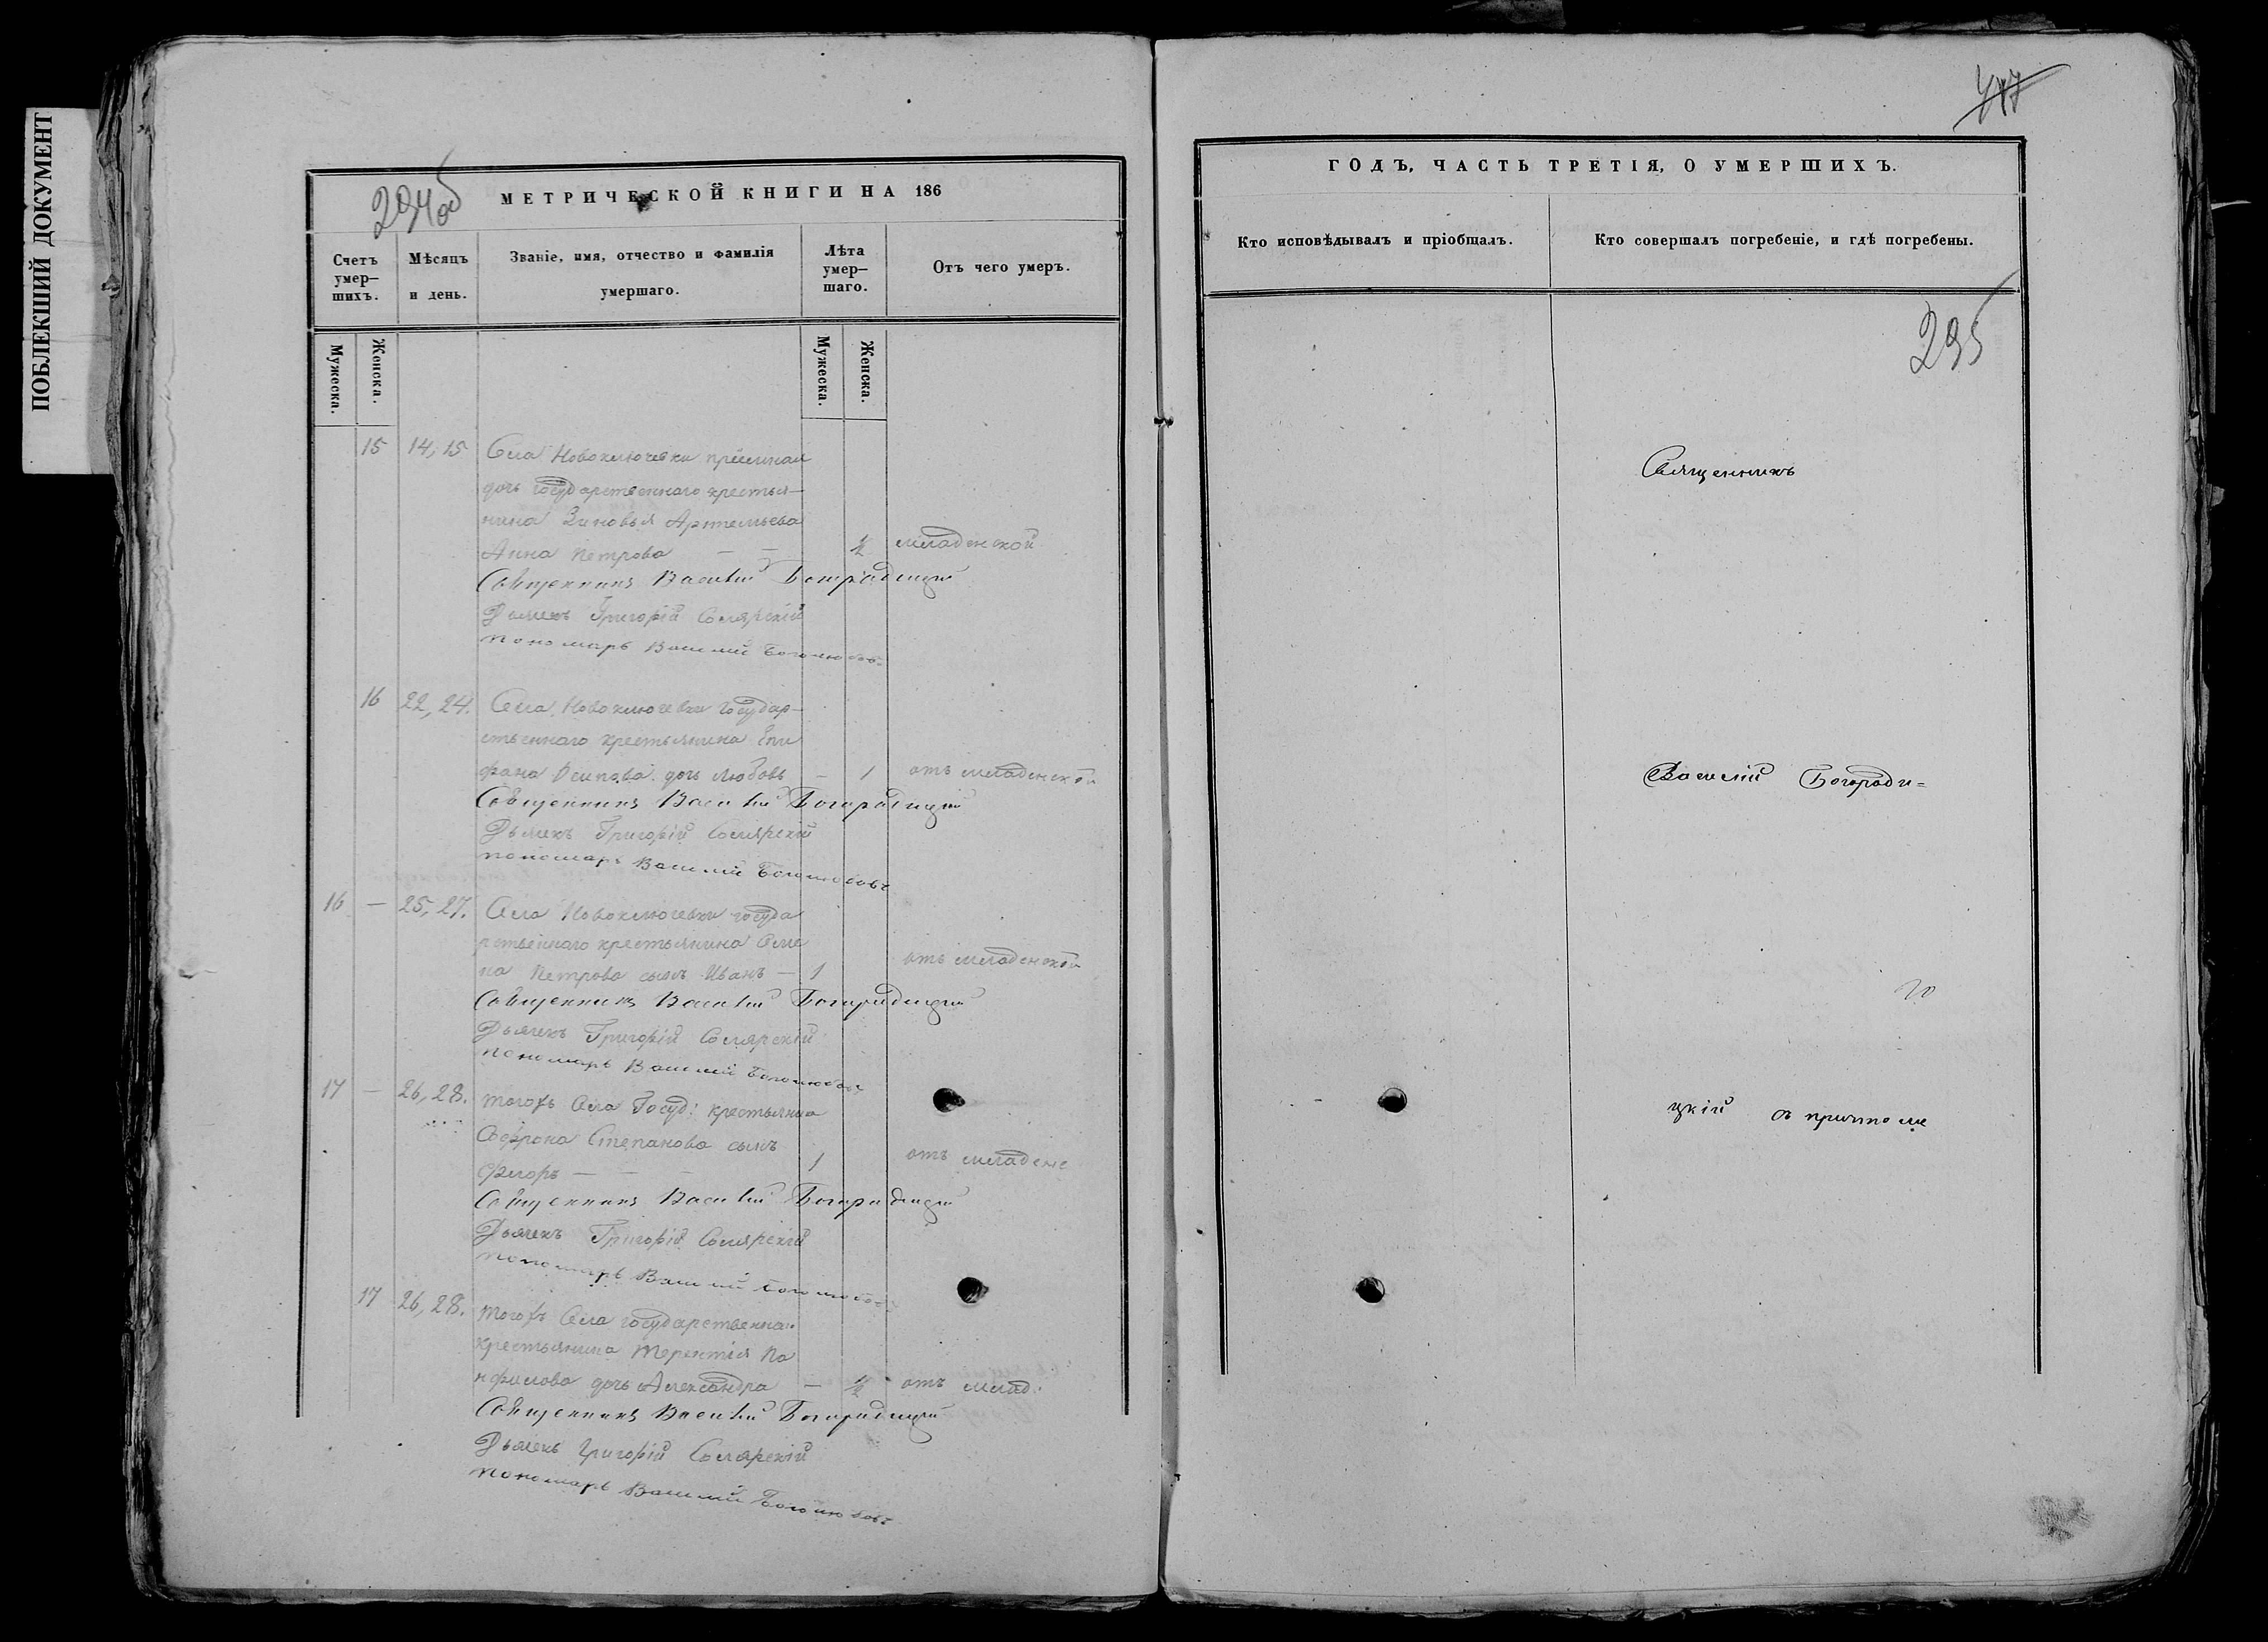 ПОБЛЕКШИЙ ДОКУМЕНТ
294об
МЕТРИЧЕСКОЙ КНИГИ НА 186
Счетъ умер–шихъ.
Мѣсяцъ и день.
Званіе, имя, отчество и фамилія умершаго.
Лѣта умер–шаго.
Отъ чего умеръ.
Мужеска.
Женска.
Мужеска.
Женска.
15 14, 15 Села Новоключевки пріемная
дочь государственнаго крестья–
нина Зиновья Артемьева
Анна Петрова — — ½ младенской
Священникъ Василій Богородицкій
Дьячекъ Григорій Солярскій
Пономарь Василій Боголюбовъ
16 22, 24. Села Новоключевки государ–
ственнаго крестьянина Епи
фана Осипова дочь Любовь — 1 отъ младенской
Священникъ Василій Богородицкій
Дьячекъ Григорій Солярскій
пономарь Василій Боголюбовъ
16 — 25, 27. Села Новоключевки госуда
рственнаго крестьянина Семе
на Петрова сынъ Иванъ — 1 отъ младенской
Священникъ Василій Богородицкій
Дьячекъ Григорій Солярскій
пономарь Василій Боголюбовъ
17 — 26, 28. тогожъ Села Госуд: крестьянина
Софрона Степанова сынъ
Флоръ — — — 1 отъ младенс
Священникъ Василій Богородицкій
Дьячекъ Григорій Солярскій
пономарь Василій Боголюбовъ
17 26, 28. тогожъ Села государственна.
крестьянина Терентія Па
нфилова дочь Александра — ½ отъ млад:
Священникъ Василій Богородицкій
Дьячекъ Григорій Солярскій
Пономарь Василій Боголюбовъ
ГОДЪ, ЧАСТЬ ТРЕТІЯ, О УМЕРШИХЪ.
Кто исповѣдывалъ и пріобщалъ.
Кто совершалъ погребеніе, и гдѣ погребены.
295
Священникъ
Василій Богороди=
цкій съ причтомъ